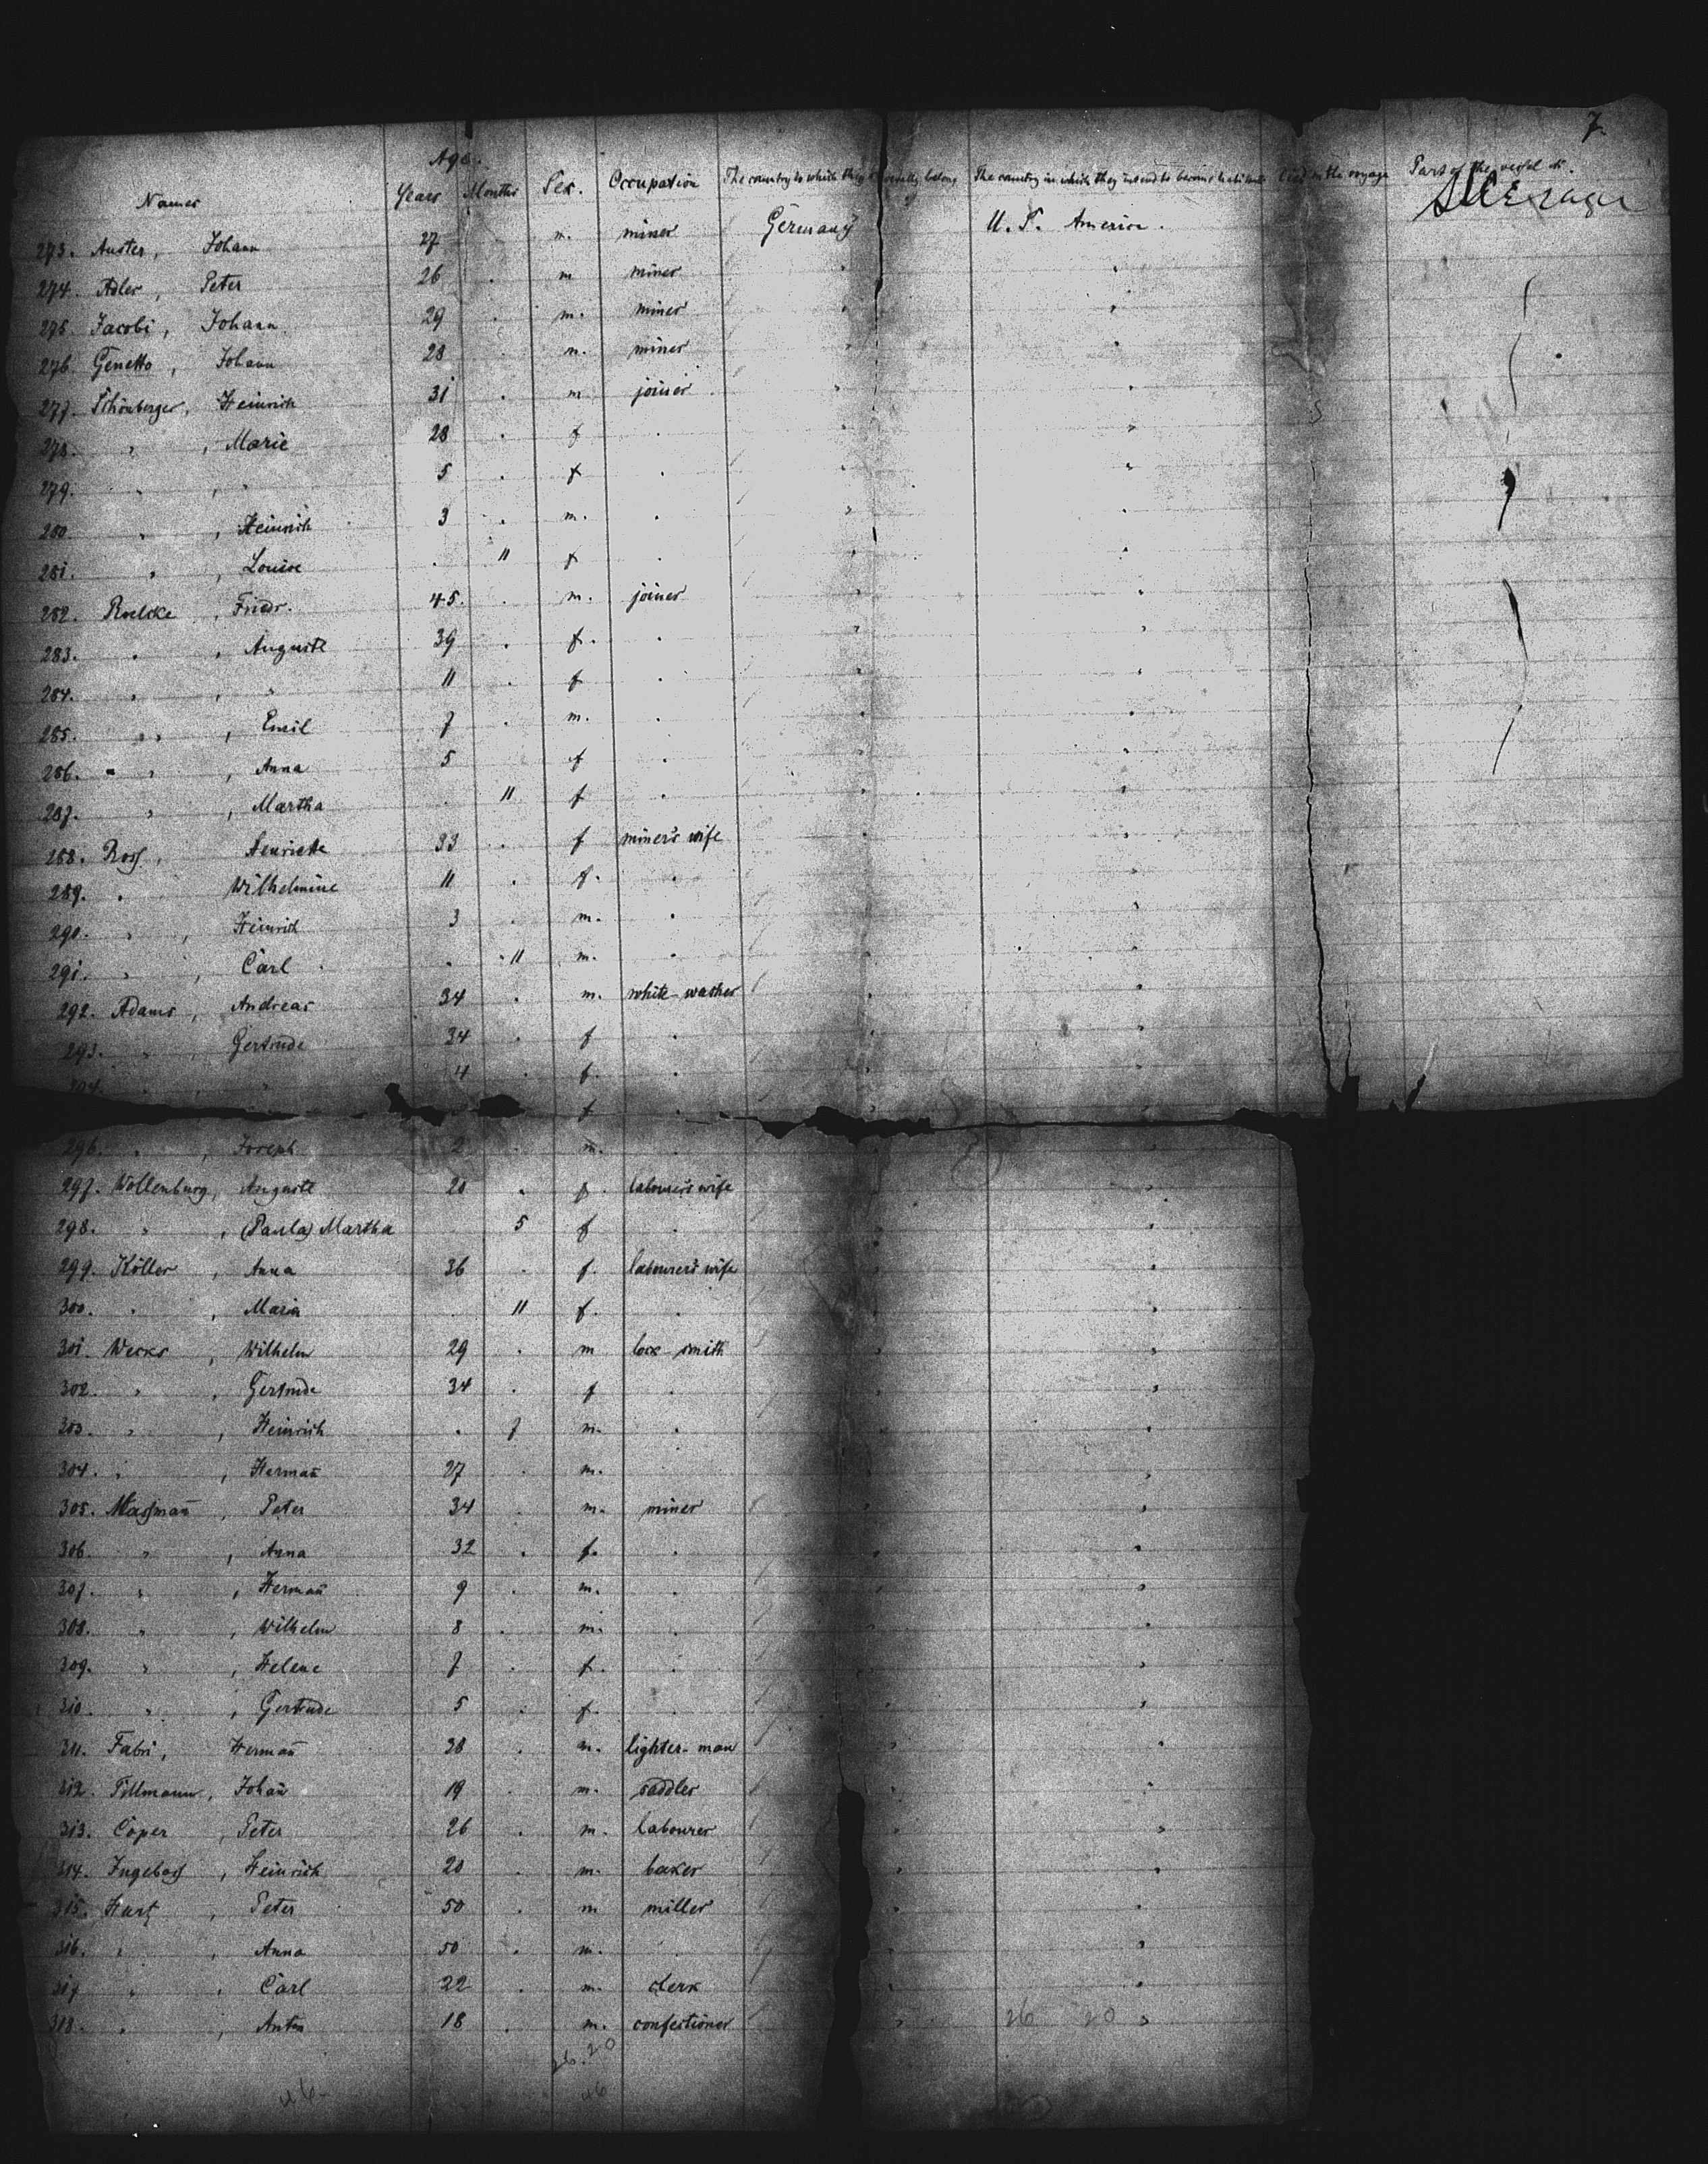 7.
Age.
Names Years Months Sex. Occupation The country to which they severally belong The country in which they intend to become Died on the voyage Part of the vessel
Steerage
273. Auster, Johann 27 m. miner Germany U. S. America.
274. Adler, Peter 26 . m miner " "
275. Jacobi, Johann 29 . m. miner " "
276. Genetto, Johann 28 . m. miner " "
277. Schönberger, Heinrich 31 . m joiner " "
278. " , Marie 28 . f . " "
279. " , " 5 . f . " "
280. " , Heinrich 3 . m. . " "
281. " , Louise . 11 f . " "
282. Roelcke, Friedr. 45. . m. joiner " "
283. " , Auguste 39 . f. . " "
284. " , " 11 . f . " "
285. " , Emil 7 . m. . " "
286. " , Anna 5 f . " "
287. " , Martha . 11 f . " "
288. Roß, Henriette 33 . f miner's wife " "
289. " Wilhelmine 11 . f. . " "
290. " , Heinrich 3 . m. . " "
291. " , Carl . 11 m. . " "
292. Adams, Andreas 34 . m. white-washer " "
293. " , Gertrude 34 . f . " "
294. " , " 4 . f. . " "
f . "
296. " , Joseph 2 . m. . " "
297. Wollenburg, Auguste 20 . f. labourer's wife " "
298. " , (Paula) Martha 5 f . " "
299. Köller, Anna 36 . f. labourer's wife " "
300. " , Maria . 11 f. . " "
301. Wecks, Wilhelm 29 . m lock-smith " "
302. " , Gertrude 34 . f . " "
303. " , Heinrich . 7 m. . " "
304. " , Herman̄ 27 . m. " "
305. Maßman̄, Peter 34 . m. miner " "
306. " , Anna 32 . f. . " "
307. " , Herman̄ 9 . m. . " "
308. " , Wilhelm 8 . m. . " "
309. " , Helene 7 . f. . " "
310. " , Gertrude 5 . f. . " "
311. Fabri, Herman̄ 28 . m. lighter-man " "
312. Tillmann, Johan̄ 19 . m. saddler " "
313. Cöper, Peter 26 . m. labourer " "
314. Ingeboß, Heinrich 20 . m. baker " "
315. Hartz, Peter 50 . m miller " "
316. " , Anna 50 . m. . " "
317. " , Carl 22 . m. clerk " "
318. " , Anton 18 . m. confectioner " 26 20 "
26.20
46 46